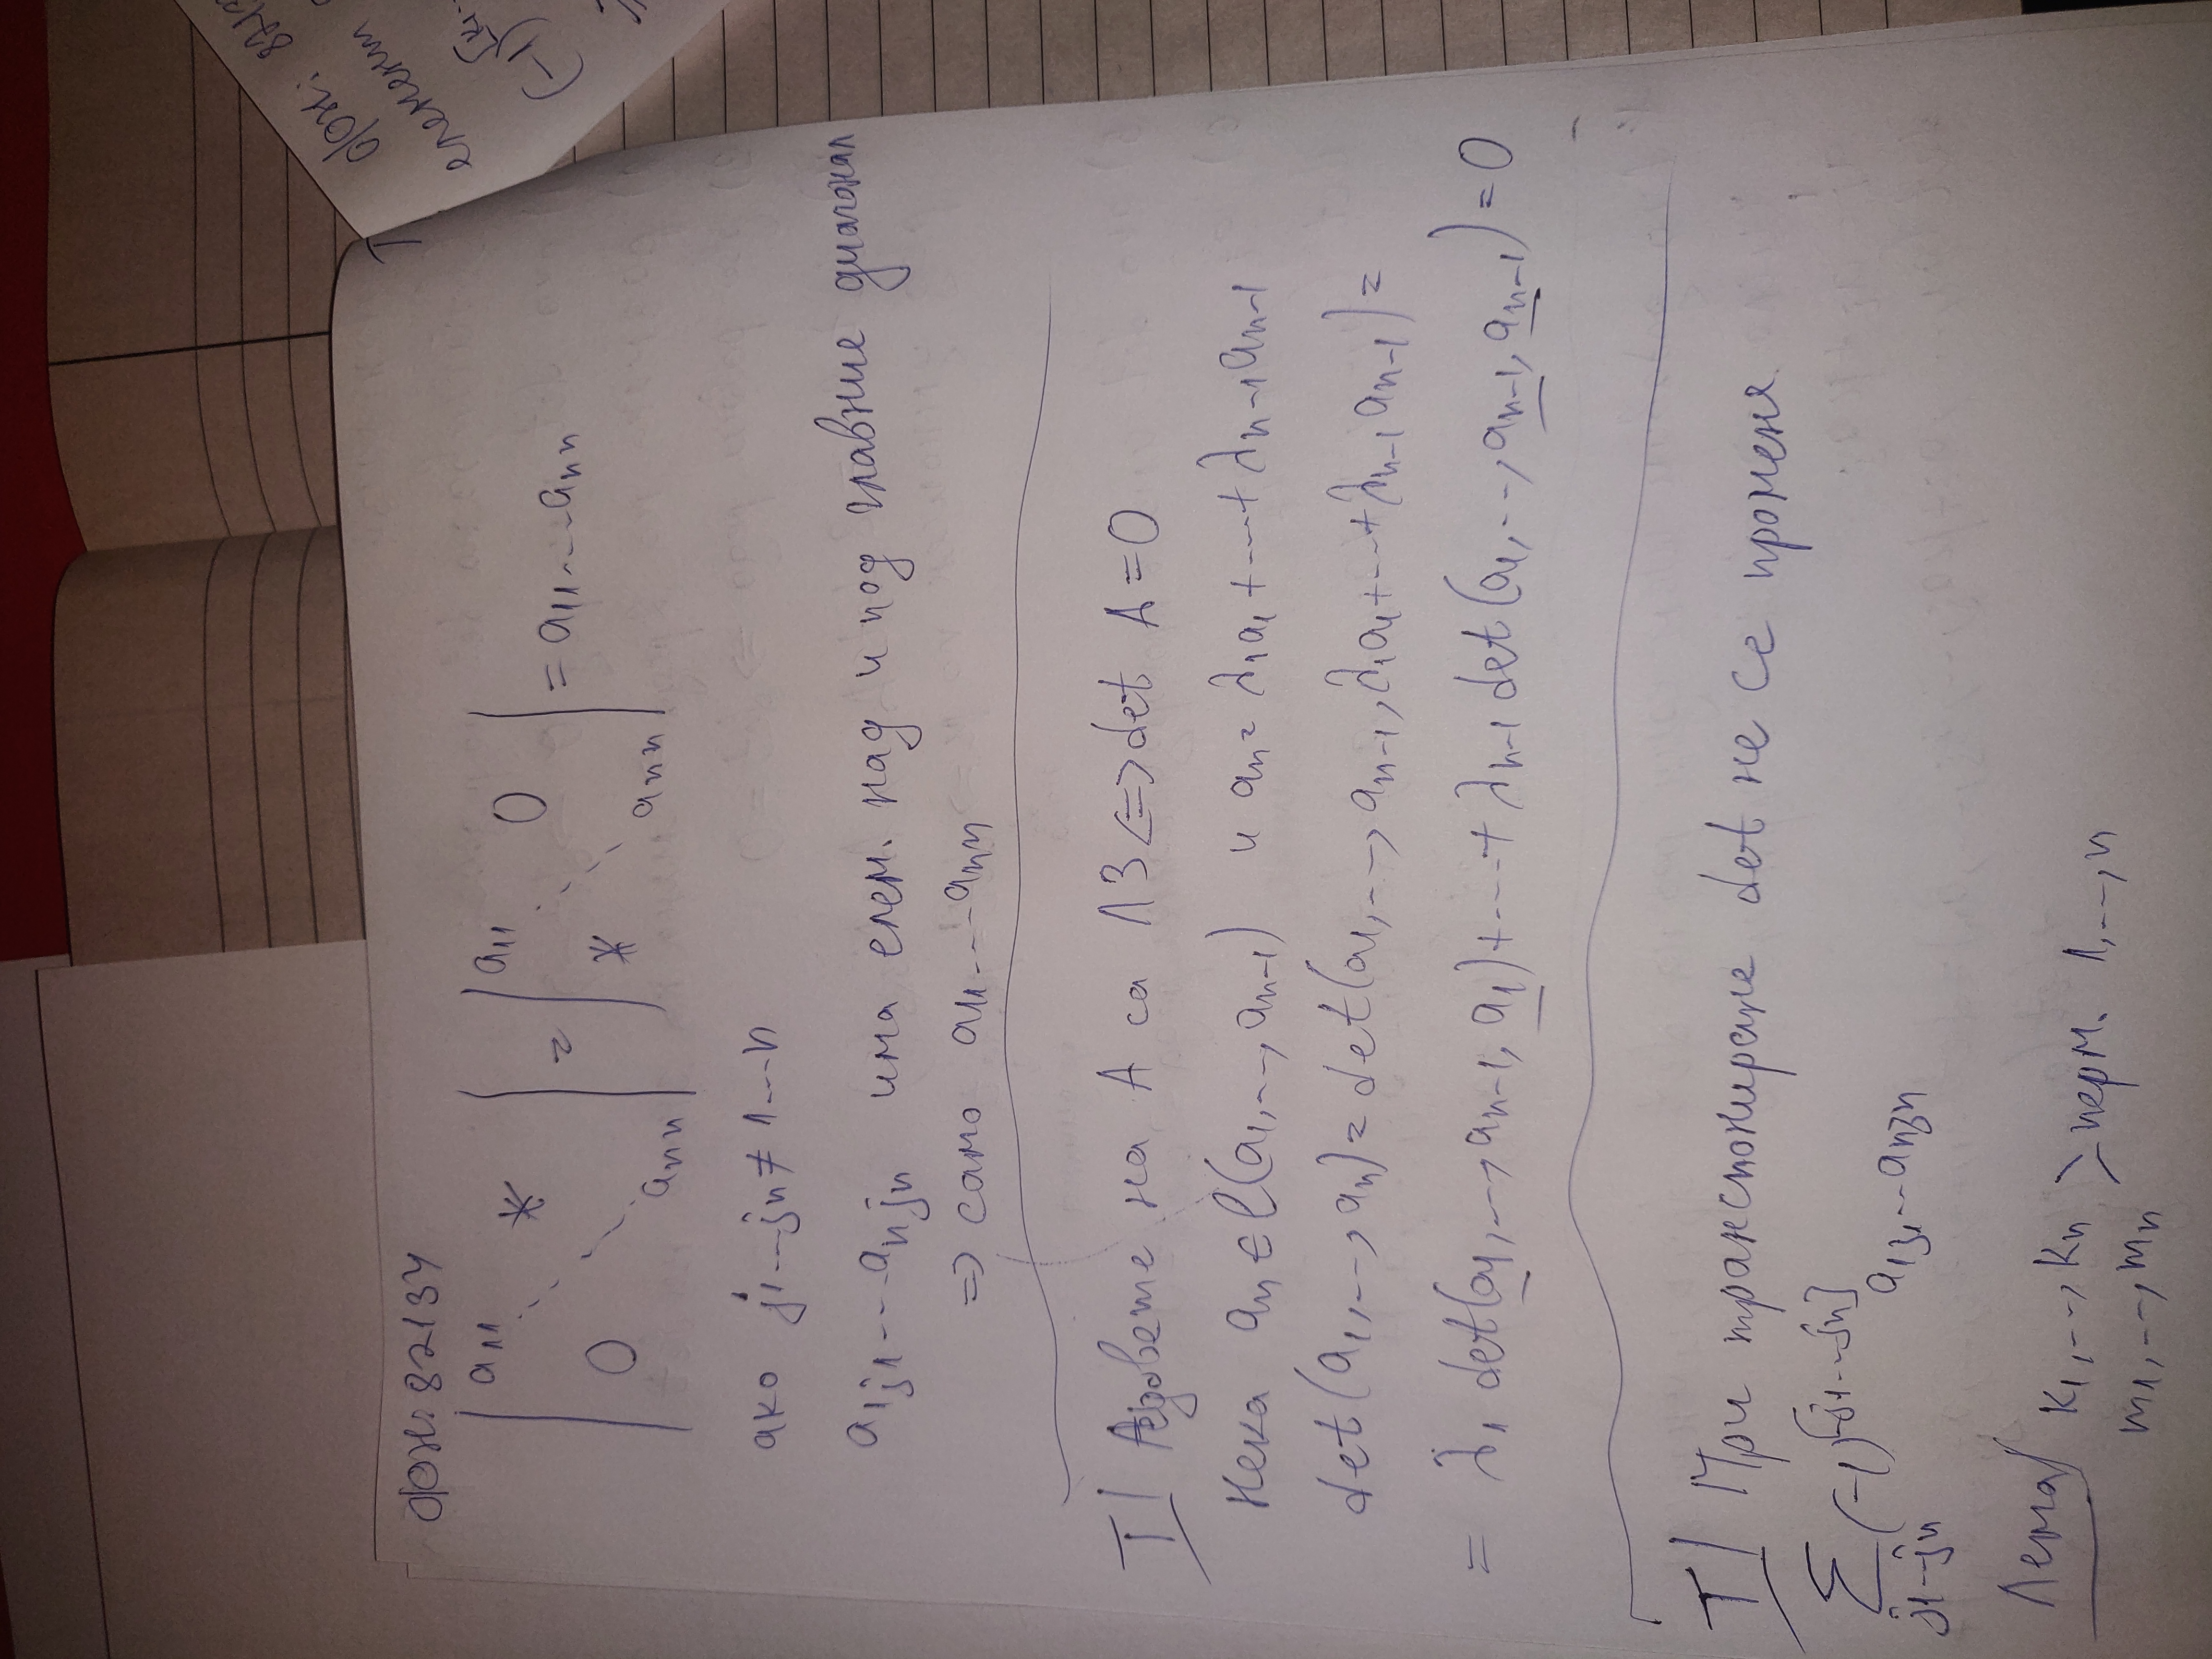 фн: 82134
| a11 * 0 ann | = | a11 0 * ann | = a11....ann
ако j1...jn ≠ 1...n
a1j1....anjn има елем. над и под главние диагонал
=> само a11....ann
T| Редовете на A са ЛЗ <=> det A = 0
Нека an ∈ ℓ(a1,...,an-1) и an = λ1a1+....+λn-1an-1
det(a1,...,an) = det(a1,...,an-1,λ1a1+...+λn-1an-1) =
= λ1 det(a1,...,an-1,a1)+....+λn-1 det(a1,...,an-1,an-1) = 0
T| При транспониране det не се променя.
∑ (-1)^[j1...jn] a1j1...anjn
j1...jn
Лема| k1,...,kn
m1,...,mn > перм. 1,...,n
T
елемент
(-1)